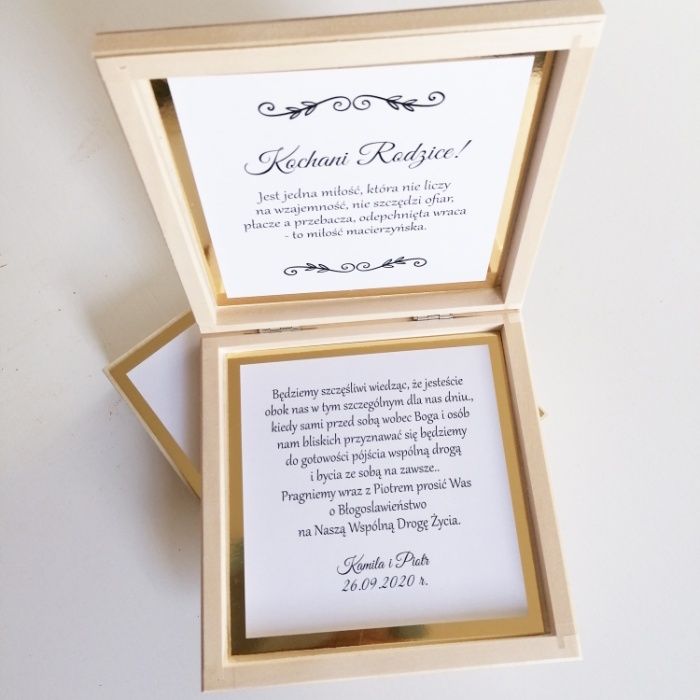 Kochani Rodzice!
Jest jedna miłość, która nie liczy
na wzajemność, nie szczędzi ofiar,
płacze a przebacza, odepchnięta wraca
- to miłość macierzyńska.
Będziemy szczęśliwi wiedząc, że jesteście
obok nas w tym szczególnym dla nas dniu.,
kiedy sami przed sobą wobec Boga i osób
nam bliskich przyznawać się będziemy
do gotowości pójścia wspólną drogą
i bycia ze sobą na zawsze..
Pragniemy wraz z Piotrem prosić Was
o Błogosławieństwo
na Naszą Wspólną Drogę Życia.
Kamila i Piotr
26.09.2020 r.